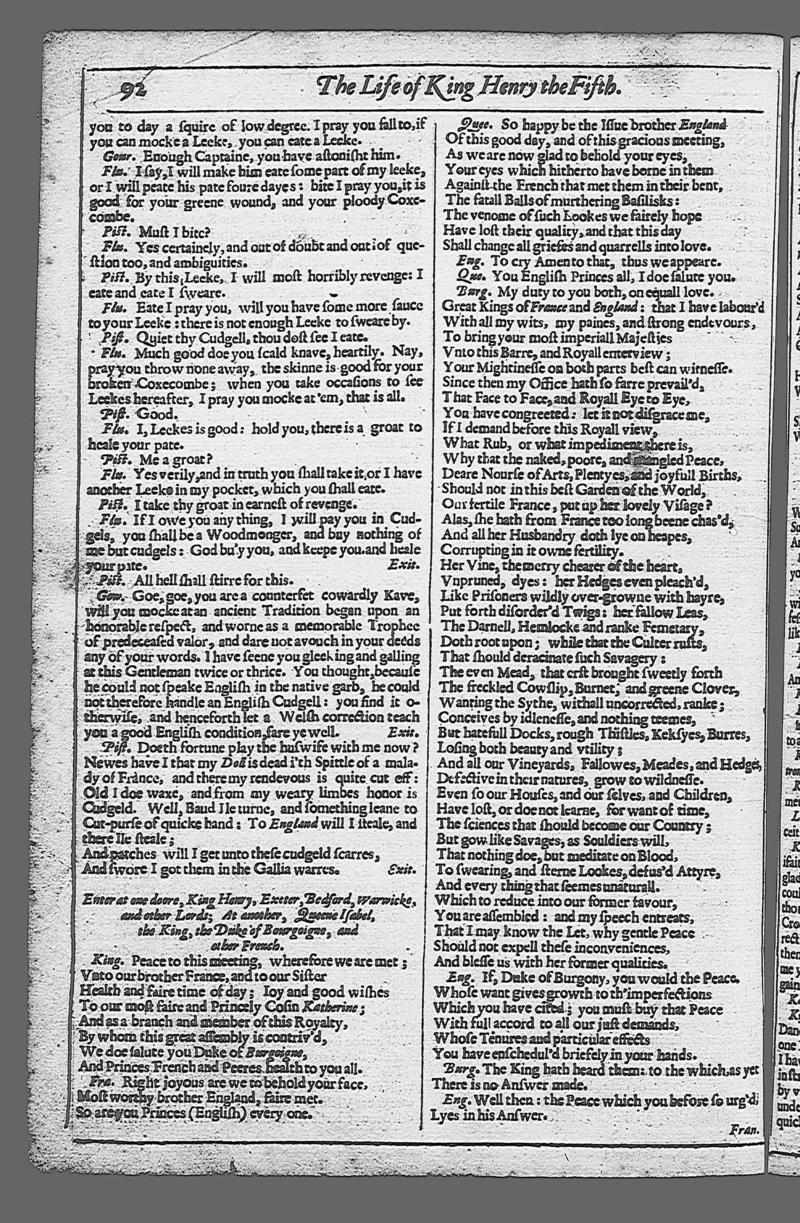 92
The Life of King Henry the Fifth.
you to day a ſquire of low degree. I pray you fall to, if
you can mocke a Leeke, you can eate a Leeke.
Gour. Enough Captaine, you have aſtoniſht him.
Flu. I ſay, I will make him eate ſome part of my leeke,
or I will peate his pate foure dayes: bite I pray you, it is
good for your greene wound, and your ploody Coxe-
combe.
Piſt. Muſt I bite?
Flu. Yes certainely, and out of doubt and out of que-
ſtion too, and ambiguities.
Piſt. By this Leeke, I will moſt horribly revenge: I
eate and eate I ſweare.
Flu. Eate I pray you, will you have ſome more ſauce
to your Leeke: there is not enough Leeke to ſweare by.
Piſt. Quiet thy Cudgell, thou doſt ſee I eate.
Flu. Much good doe you ſcald knave, heartily. Nay,
pray you throw none away, the skinne is good for your
broken Coxecombe; when you take occaſions to ſee
Leekes hereafter, I pray you mocke at 'em, that is all.
Piſt. Good.
Flu. I, Leekes is good: hold you, there is a groat to
heale your pate.
Piſt. Me a groat?
Flu. Yes verily, and in truth you ſhall take it, or I have
another Leeke in my pocket, which you ſhall eate.
Piſt. I take thy groat in earneſt of revenge.
Flu. If I owe you any thing, I will pay you in Cud-
gels, you ſhall be a Woodmonger, and buy nothing of
me but cudgels: God bu'y you, and keepe you and heale
your pate. Exit.
Piſt. All hell ſhall ſtirre for this.
Gow. Goe, goe, you are a counterfet cowardly Kave,
will you mocke at an ancient Tradition began upon an
honorable reſpect, and worne as a memorable Trophee
of predeceaſed valor, and dare not avouch in your deeds
any of your words. I have ſeene you gleeking and galling
at this Gentleman twice or thrice. You thought, becauſe
he could not ſpeake Engliſh in the native garb, he could
not therefore handle an Engliſh Cudgell: you find it o-
therwiſe, and henceforth let a Welſh correction teach
you a good Engliſh condition, fare ye well. Exit.
Piſt. Doeth fortune play the huſwife with me now?
Newes have I that my Doll is dead i'th Spittle of a mala-
dy of France, and there my rendevous is quite cut off:
Old I doe waxe, and from my weary limbes honor is
Cudgeld. Well, Baud Ile turne, and ſomething leane to
Cut-purſe of quicke hand: To England will I ſteale, and
there Ile ſteale;
And patches will I get unto theſe cudgeld ſcarres,
And ſwore I got them in the Gallia warres. Exit.
Enter at one doore, King Henry, Exeter, Bedford, Warwicke,
and other Lords; At another, Queene Iſabel,
the King, the Duke of Bourgoigne, and
other French.
King. Peace to this meeting, wherefore we are met;
Vnto our brother France, and to our Siſter
Health and faire time of day; Ioy and good wiſhes
To our moſt faire and Princely Coſin Katherine;
And as a branch and member of this Royalty,
By whom this great aſſembly is contriv'd,
We doe ſalute you Duke of Bourgoigne,
And Princes French and Peeres health to you all.
Fra. Right joyous are we to behold your face,
Moſt worthy brother England, faire met.
So are you Princes (Engliſh) every one.
Quee. So happy be the Iſſue brother England
Of this good day, and of this gracious meeting,
As we are now glad to behold your eyes,
Your eyes which hitherto have borne in them
Againſt the French that met them in their bent,
The fatall Balls of murthering Baſilisks:
The venome of ſuch Lookes we fairely hope
Have loſt their quality, and that this day
Shall change all griefes and quarrells into love.
Eng. To cry Amen to that, thus we appeare.
Que. You Engliſh Princes all, I doe ſalute you.
Burg. My duty to you both, on equall love.
Great Kings of France and England: that I have labour'd
With all my wits, my paines, and ſtrong endevours,
To bring your moſt imperiall Majeſties
Vnto this Barre, and Royall enterview;
Your Mightineſſe on both parts beſt can witneſſe.
Since then my Office hath ſo farre prevail'd,
That Face to Face, and Royall Eye to Eye,
You have congreeted: let it not diſgrace me,
If I demand before this Royall view,
What Rub, or what impediment there is,
Why that the naked, poore, and mangled Peace,
Deare Nourſe of Arts, Plentyes, and joyfull Births,
Should not in this beſt Garden of the World,
Our fertile France, put up her lovely Viſage?
Alas, ſhe hath from France too long beene chas'd,
And all her Husbandry doth lye on heapes,
Corrupting in it owne fertility.
Her Vine, the merry chearer of the heart,
Vnpruned, dyes: her Hedges even pleach'd,
Like Priſoners wildly over-growne with hayre,
Put forth diſorder'd Twigs: her fallow Leas,
The Darnell, Hemlocke and ranke Femetary,
Doth root upon; while that the Culter ruſts,
That ſhould deracinate ſuch Savagery:
The even Mead, that erſt brought ſweetly forth
The freckled Cowſlip, Burnet, and greene Clover,
Wanting the Sythe, withall uncorrected, ranke;
Conceives by idleneſſe, and nothing teemes,
But hatefull Docks, rough Thiſtles, Kekſyes, Burres,
Loſing both beauty and vtility;
And all our Vineyards, Fallowes, Meades, and Hedges,
Defective in their natures, grow to wildneſſe.
Even ſo our Houſes, and our ſelves, and Children,
Have loſt, or doe not learne, for want of time,
The ſciences that ſhould become our Country;
But gow like Savages, as Souldiers will,
That nothing doe, but meditate on Blood,
To ſwearing, and ſterne Lookes, defus'd Attyre,
And every thing that ſeemes unaturall.
Which to reduce into our former favour,
You are aſſembled: and my ſpeech entreats,
That I may know the Let, why gentle Peace
Should not expell theſe inconveniences,
And bleſſe us with her former qualities.
Eng. If, Duke of Burgony, you would the Peace,
Whoſe want gives growth to th'imperfections
Which you have cited; you muſt buy that Peace
With full accord to all our juſt demands,
Whoſe Tenures and particular effects
You have enſchedul'd briefely in your hands.
Burg. The King hath heard them: to the which, as yet
There is no Anſwer made.
Eng. Well then: the Peace which you before ſo urg'd,
Lyes in his Anſwer.
Fran.